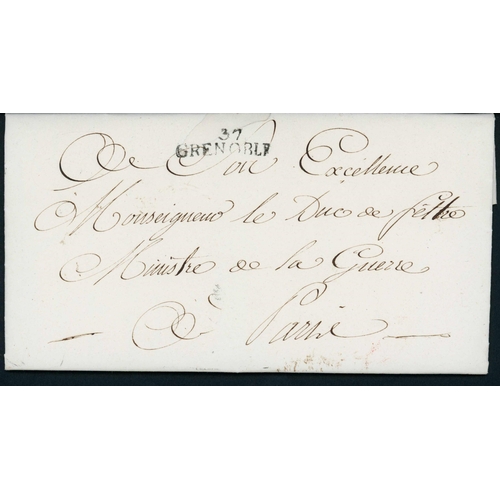 37
GRENOBLE
À Son Excellence
Monseigneur le Duc de feltre
Ministre de la Guerre
À Paris